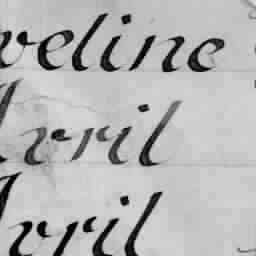 veline
Avril
Avril